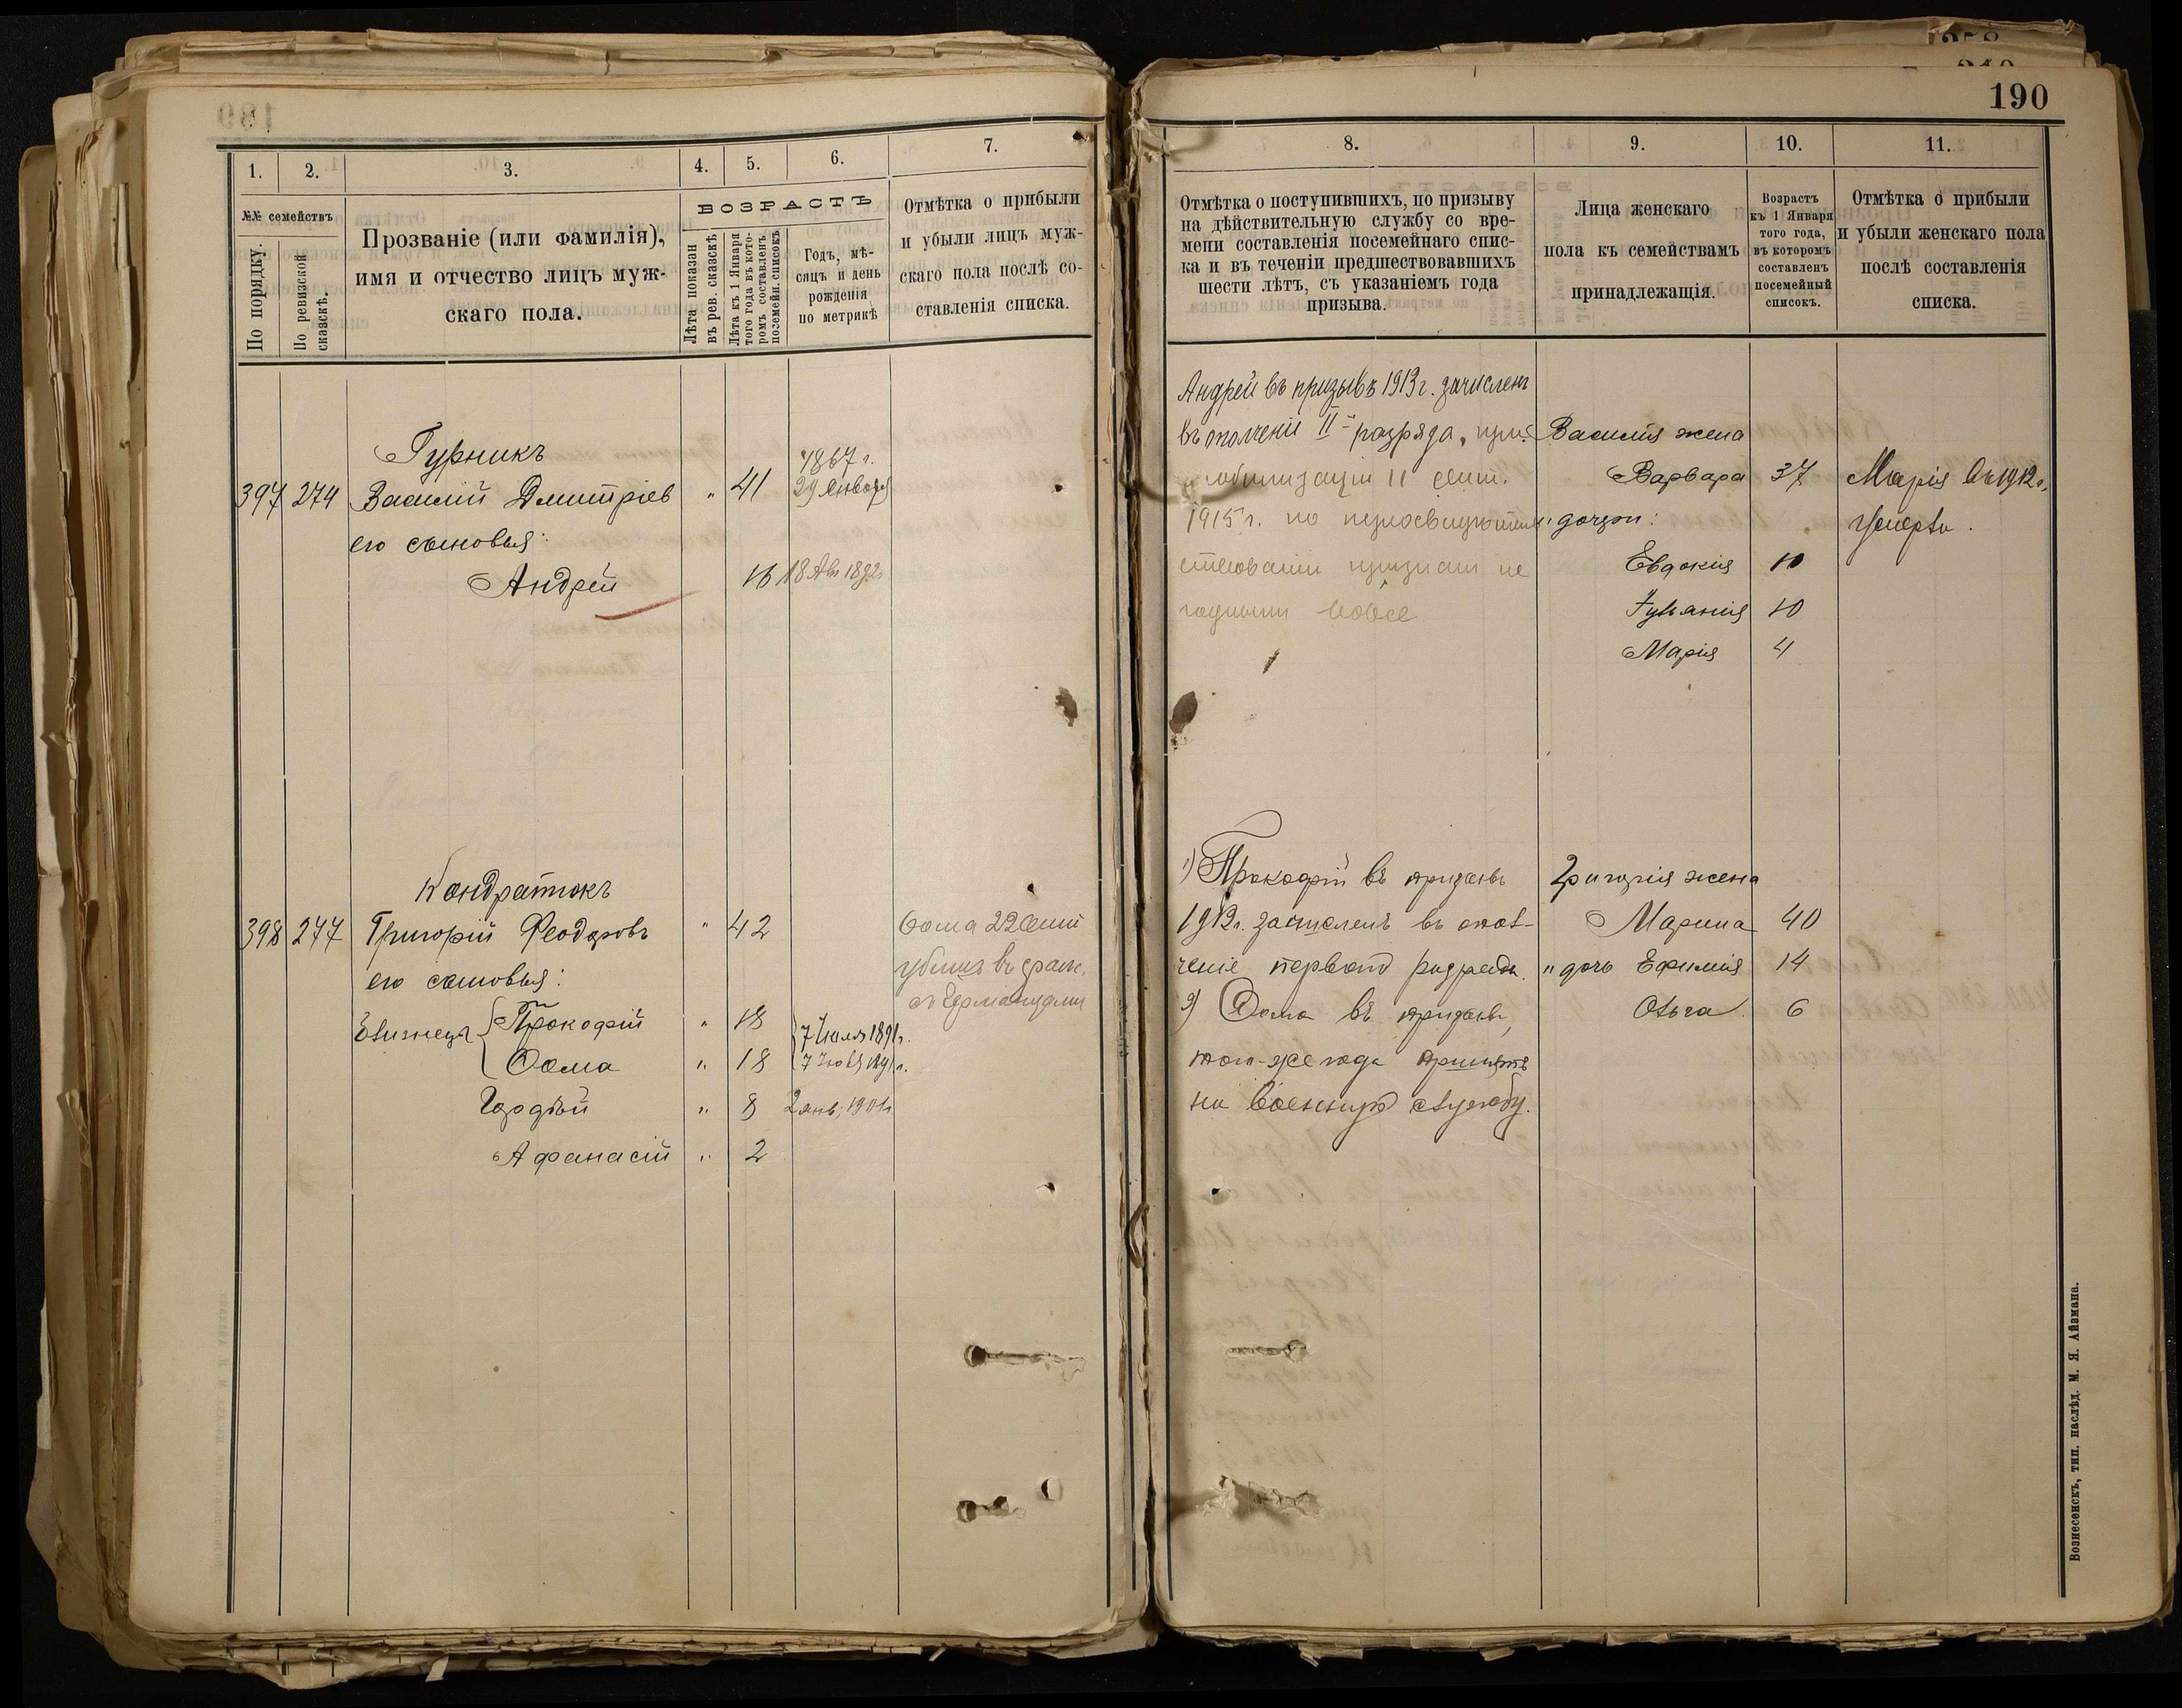 190
1. 2. 3. 4. 5. 6. 7.
№№ семействъ
По порядку.
По ревизской сказскѣ.
Прозваніе (или фамилія),
имя и отчество лицъ муж-
скаго пола.
ВОЗРАСТЪ
Лѣта показан
въ рев. сказскѣ
Лѣта къ 1 Января
того года въ кото-
ромъ составленъ
посемейн. списокъ
Годъ, мѣ-
сяцъ и день
рожденія
по метрикѣ
Отмѣтка о прибыли
и убыли лицъ муж-
скаго пола послѣ со-
ставленія списка.
Гурникъ
397 274 Василій Дмитріев " 41 1867 г.
29 Января
его сыновья:
Андрей 16 18 Авг 1892
Кондратюкъ
398 277 Григорій Феодоровъ " 42
его сыновья:
Близнецы { Прокофій " 18 7 Іюля 1891 г.
Ѳома " 18 7 Іюля 1891 г.
Гордѣй " 8 2 янв. 1901 г
Афанасій " 2
Ѳома 22
убитъ въ сраж.
съ Германцами
8. 9. 10. 11.
Отмѣтка о поступившихъ, по призыву
на дѣйствительную службу со вре-
мени составленія посемейнаго спис-
ка и въ теченіи предшествовавшихъ
шести лѣтъ, съ указаніемъ года
призыва.
Лица женскаго
пола къ семействамъ
принадлежащія.
Возрастъ
къ 1 Января
того года,
въ которомъ
составленъ
посемейный
списокъ.
Отмѣтка о прибыли
и убыли женскаго пола
послѣ составленія
списка.
Андрей въ призывъ 1913 г. зачисленъ
въ ополченіе II разряда, при
мобилизаціи 11 сент.
1915 г. по переосвидѣтель
ствованіи признан не
годнымъ вовсе
Василія жена
Варвара 37
" дочери:
Евдокія 10
Гуліанія 10
Марія 4
Марія въ 1912 г.
умерла.
1) Прокофій въ призывъ
1912 г. зачисленъ въ опол-
ченіе перваго разряда.
2) Ѳома въ призывъ
того-же года принятъ
на военную службу.
Григорія жена
Марина 40
" дочь Ефимія 14
Ольга 6
Вознесенскъ, тип. наслѣд. М. Я. Айзмана.